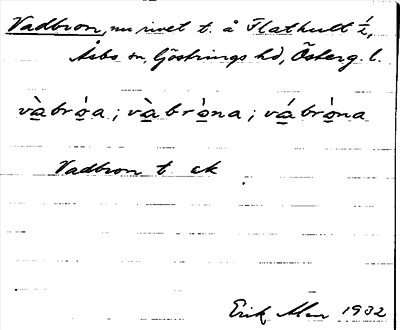 Vadbron, nu rivet t. å Flathult ½,
Åsbo sn, Göstrings hd, Österg. l.
và̱brò̱a; và̱brò̱na; vá̱brò̱na
Vadbron t. ek
Erik 1932